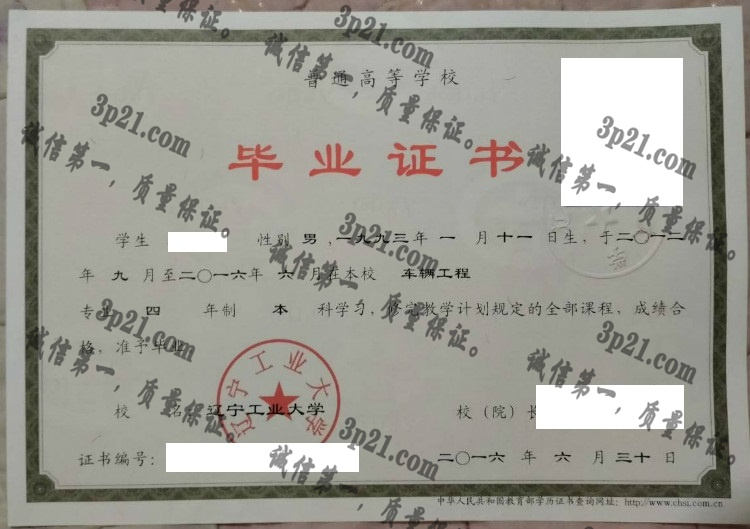 普通高等学校
毕业证书
学生 性别 男，一九九三年 一 月 十一 日生，于二〇一二
年 九 月至二〇一六年 六 月在本校 车辆工程
专业 四 年制 本 科学习，修完教学计划规定的全部课程，成绩合
格，准予毕业
辽宁工业大学
校 名 辽宁工业大学 校（院）长
证书编号： 二〇一六 年 六 月 三十 日
中华人民共和国教育部学历证书查询网址：http://www.chsi.com.cn
3p21.com
诚信第一，质量保证。
3p21.com
诚信第一，质量保证。
3p21.com
诚信第一，质量保证。
3p21.com
诚信第一，质量保证。
3p21.com
诚信第一，质量保证。
3p21.com
诚信第一，质量保证。
3p21.com
诚信第一，质量保证。
3p21.com
诚信第一，质量保证。